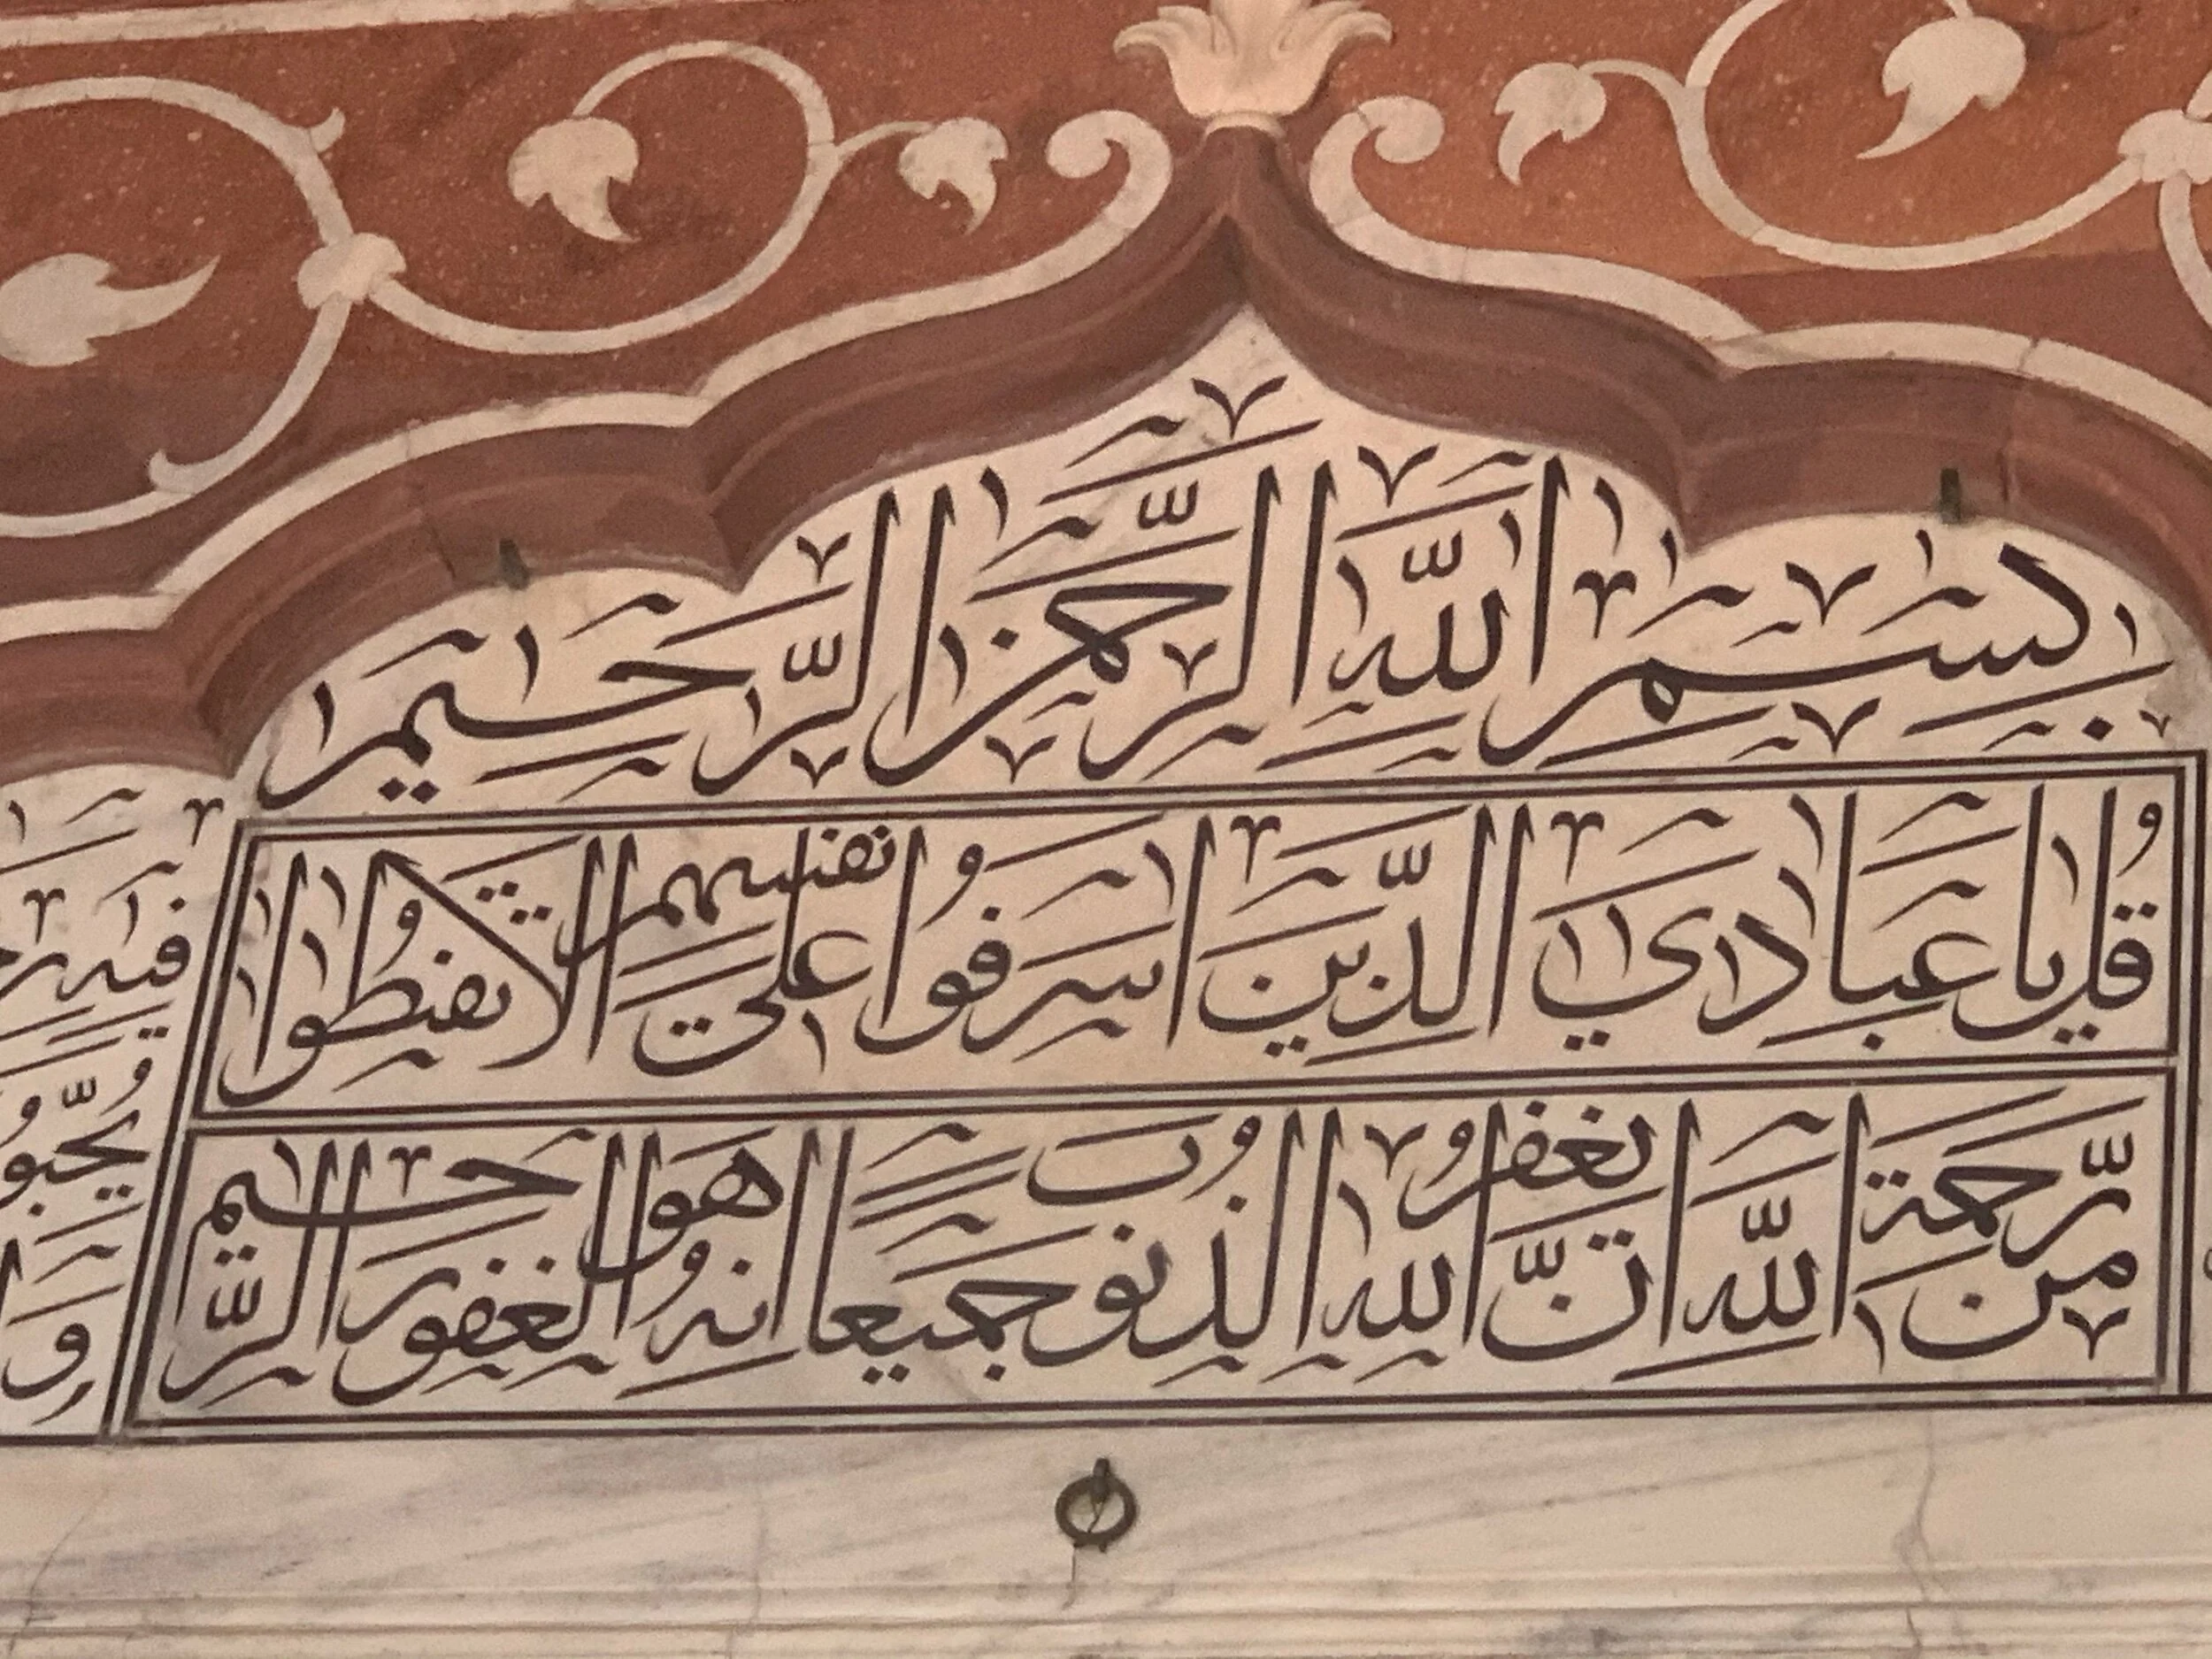 بِسْمِ اللّٰهِ الرَّحْمٰنِ الرَّحِيْمِ
قُلْ يَا عِبَادِيَ الَّذِيْنَ اَسْرَفُوْا عَلٰى اَنْفُسِهِمْ لَا تَقْنَطُوْا
مِنْ رَّحْمَةِ اللّٰهِ اِنَّ اللّٰهَ يَغْفِرُ الذُّنُوْبَ جَمِيْعًا اِنَّهُ هُوَ الْغَفُوْرُ الرَّحِيْمُ